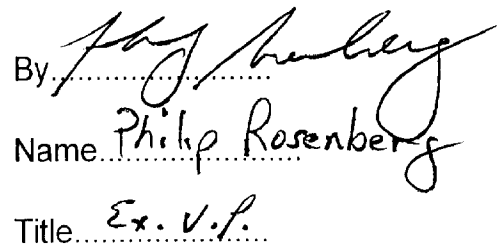 By........................
Name Philip Rosenberg
Title Ex. V.P.